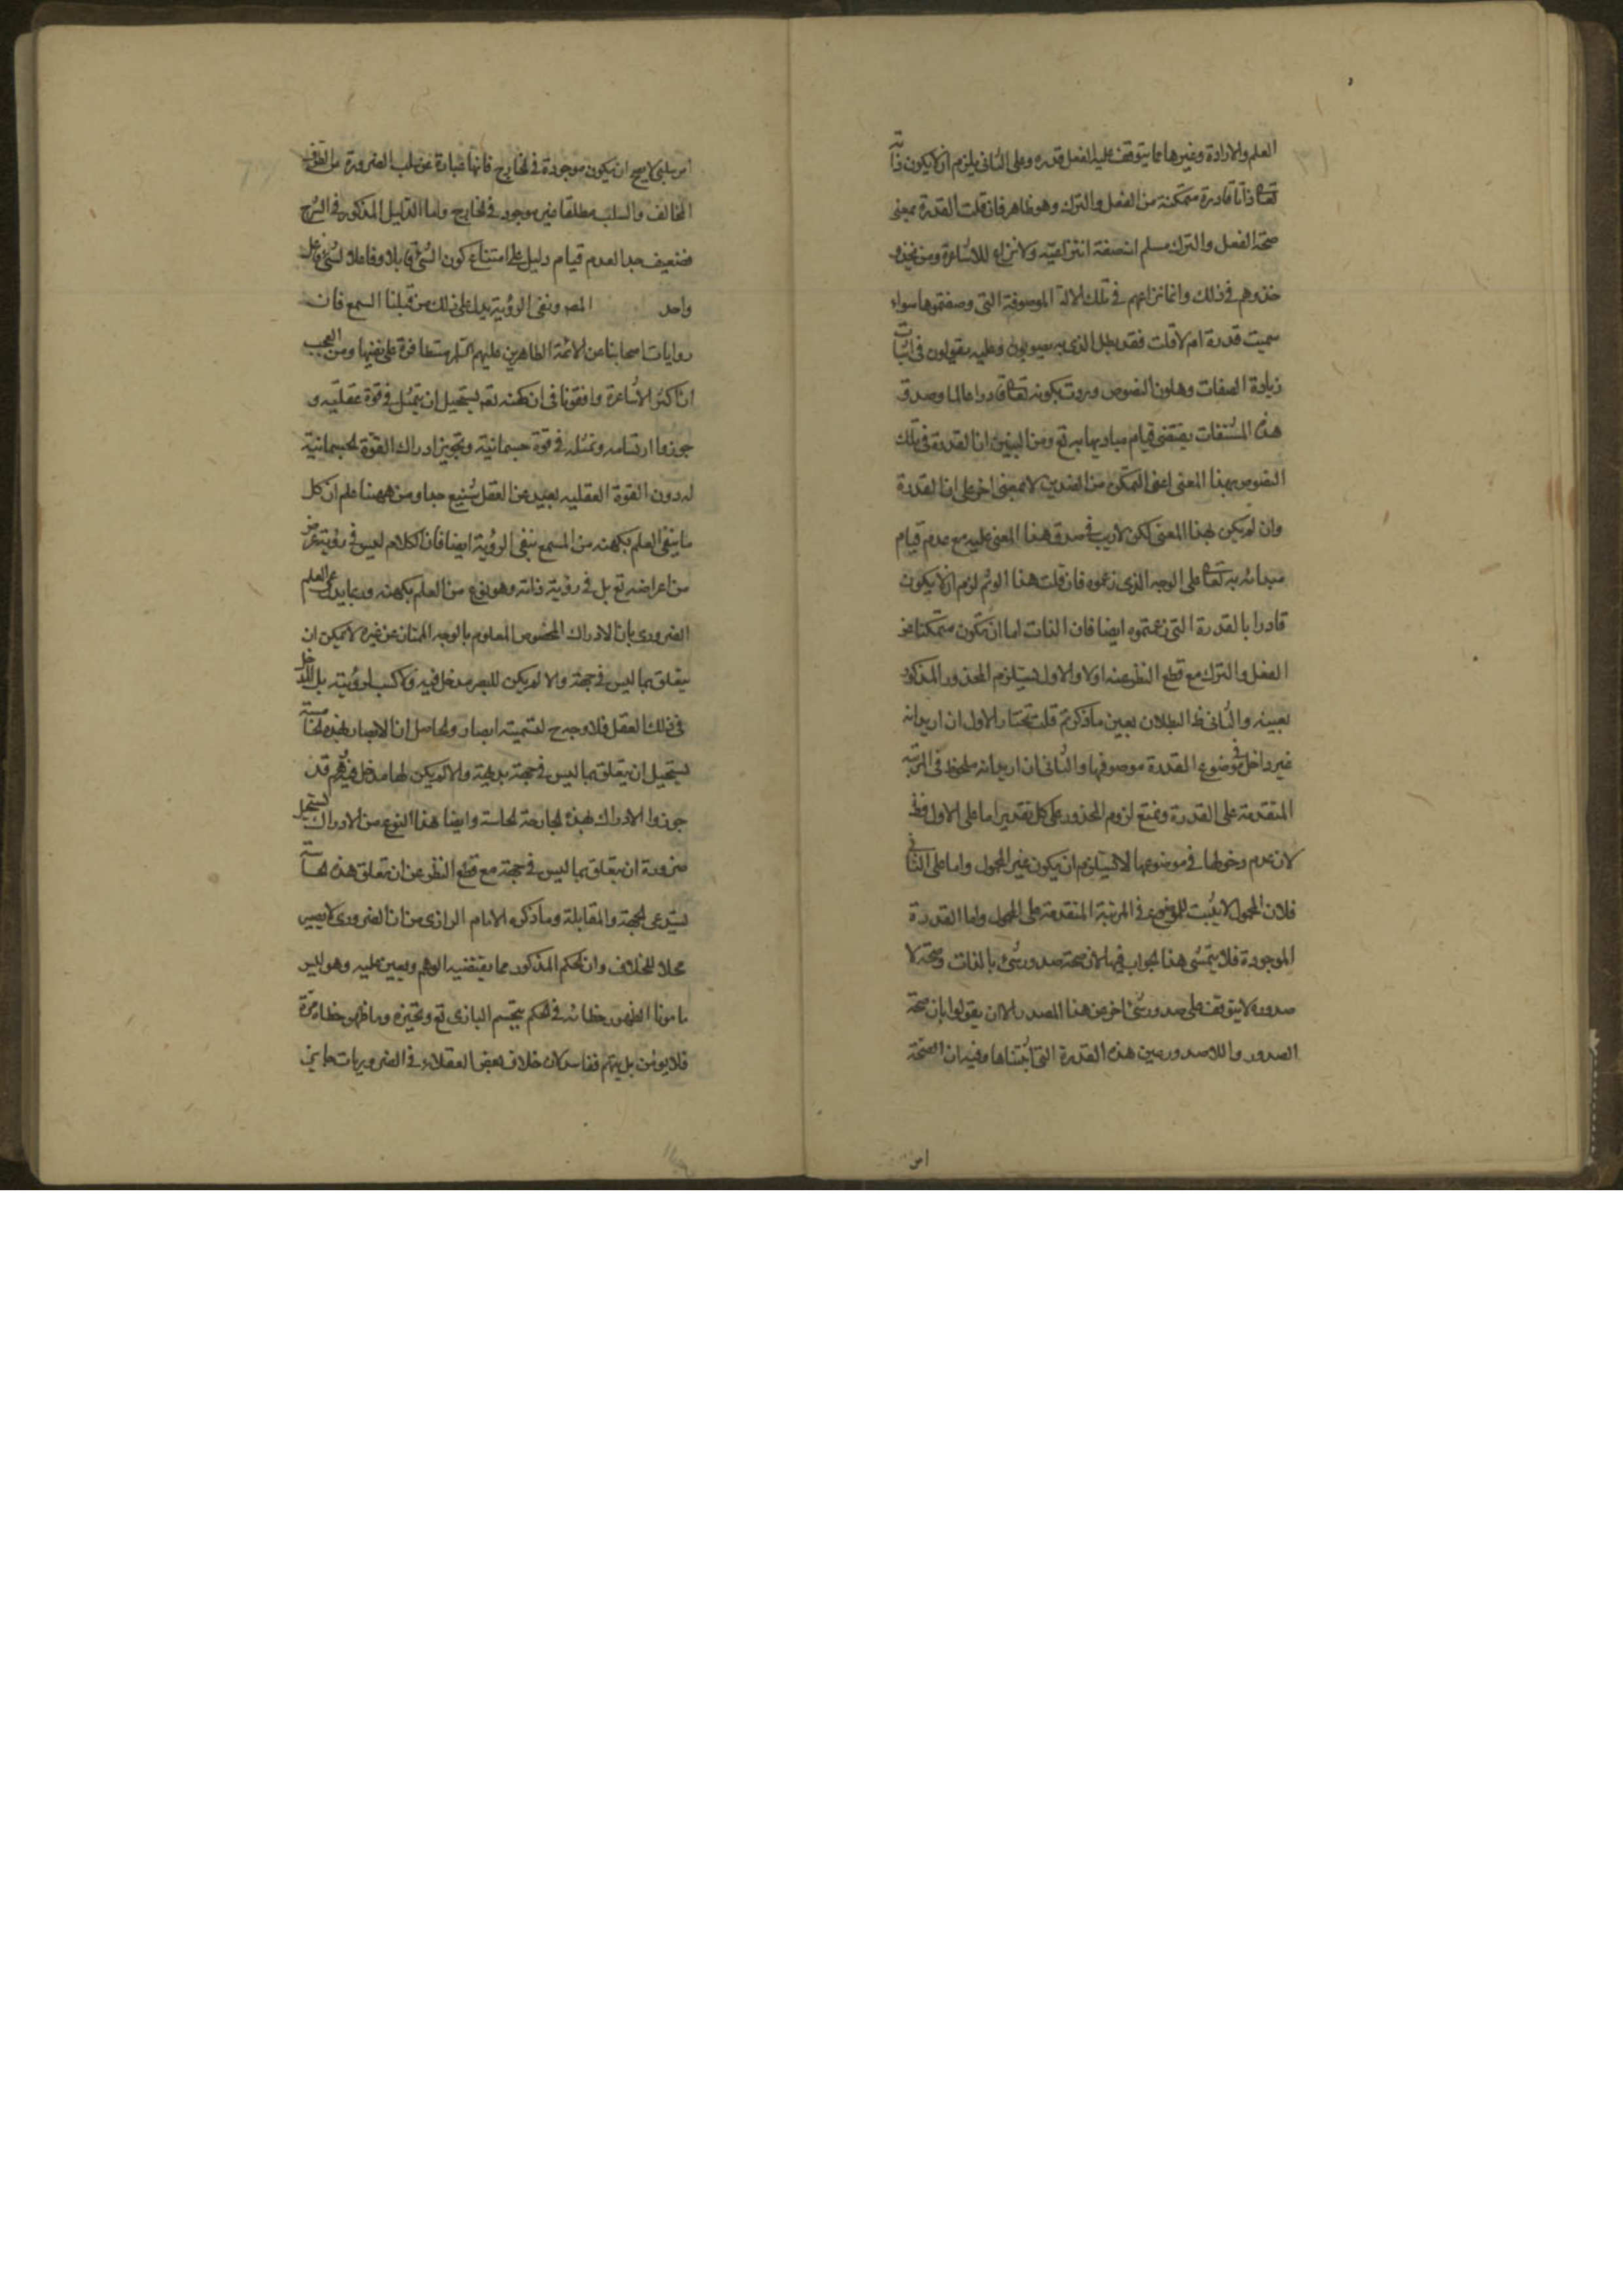 العلم والارادة وغيرها مما يتوقف عليه الفعل قدره وعلى الثانى يلزم ان لا يكون ذاته
تعالى ذاتا قادرة متمكنة من الفعل والترك وهو ظاهر فان قلت القدرة بمعنى
صحة الفعل والترك مسلم انه صفة انتزاعية ولا نزاع للاشاعرة ومن يحذو
حذوهم فى ذلك وانما نزاعهم فى تلك الالة الموصوفة التى وصفتموها سواء
سميت قدرة ام لا قلت فقد بطل الذى به يصولون وعليه يقولون فى اثبات
زيادة الصفات وهلون النصوص وردت بكونه تعالى قادرا عالما وصدق
هذه المشتقات يقتضى قيام مباديها به تع ومن البين ان القدرة فى تلك
النصوص بهذا المعنى اعنى التمكن من الضدين لا بمعنى اخر على ان القدرة
وان لم يكن بهذا المعنى لكن لا ريب فى صدق هذا المعنى عليه مع عدم قيام
مبدائه به تعالى على الوجه الذى زعموه فان قلت هذا الوتم لزم ان لا يكون
قادرا بالقدرة التى زعمتموه ايضا فان الذات اما ان تكون متمكنا من
الفعل والترك مع قطع النظر عنه اولا والاول يستلزم المحذور المذكور
بعينه والثانى ظ البطلان بعين ما ذكرتم قلت نختار الاول ان اريد انه
غير داخل فى موضوع القدرة موصوفها والثانى ان اريد انه ملحوظ فى المرتبة
المتقدمة على القدرة ونمنع لزوم المحذور على كل تقدير اما على الاول فظ
لان عدم دخولها فى موضوعها لا يستلزم ان يكون غير المحمول واما على الثانى
فلان المحمول لا يثبت للموضوع فى المرتبة المتقدمة على المحمول واما القدرة
الموجودة فلا يتمشى هذا الجواب فيها لان صحة صدور شئ بالذات وصحة لا
صدوره لا يتوقف على صدور شئ اخر عن هذا المصدر الا ان يقولوا بان صحة
الصدور واللاصدور عين هذه القدرة التى اثبتناها وفيه ان الصحة
امر
امر سلبى لا يصح ان يكون موجودة فى الخارج فانها عبارة عن سلب الضرورة عن الطرف
المخالف والسلب مطلقا غير موجود فى الخارج واما الدليل المذكور فى الشرح
فضعيف جدا لعدم قيام دليل على امتناع كون الشئ قابلا وفاعلا لشئ
واحد المصـ ونفى الرؤية يدل على ذلك من قبلنا السمع فان
روايات اصحابنا عن الائمة الطاهرين عليهم السلم متظافرة على نفيها ومن العجب
ان اكثر الاشاعرة وافقونا فى ان كنهه تعـ يستحيل ان يتمثل فى قوة عقلية و
جوزوا ارتسامه وتمثله فى قوة جسمانية وتجويز ادراك القوة الجسمانية
له دون القوة العقليه بعيد عن العقل شنيع جدا ومن ههنا علم ان كل
ما ينفى العلم بكنهه من السمع ينفى الرؤية ايضا فان الكلام ليس فى رؤية عرض
من اعراضه تع بل فى رؤية ذاته وهو نوع من العلم بكنهه وربما يدعى العلم
الضرورى بان الادراك المخصوص المعلوم بالوجه الممتاز عن غيره لا يمكن ان
يتعلق بما ليس فى جهة والا لم يكن للبصر مدخل فيه ولا كسب لرؤيته بل المدخل
فى ذلك العقل فلا وجه ح لتسميته ابصار والحاصل ان الابصار بهذه الحاسة
يستحيل ان يتعلق بما ليس فى جهة بديهة والا لم يكن لها مدخل فيه وهم قد
جوزوا الادراك بهذه الجارحة الحاسة وايضا هذا النوع من الادراك يستحيل
ضرورة ان يتعلق بما ليس فى جهة مع قطع النظر عن ان تعلق هذه الحاسة
يستدعى الجهة والمقابلة وما ذكره الامام الرازى من ان الضرورى لا يصير
محلا للخلاف وان الحكم المذكور مما يقتضيه الوهم ويعين عليه وهو ليس
مامونا لظهور خطائه فى الحكم بتجسم البارى تع وتحيزه وما ظهر خطاءه مرة
فلا يؤمن بل يتهم ففاسد لان خلاف بعض العقلاء فى الضروريات جايز